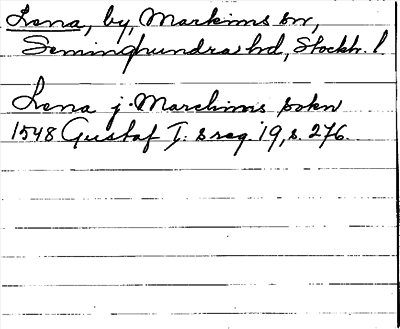 Lena, by, Markims sn,
Seminghundra hd, Stockh. l.
Lena j Marchims sokn
1548 Gustaf I: s reg 19, s. 276.